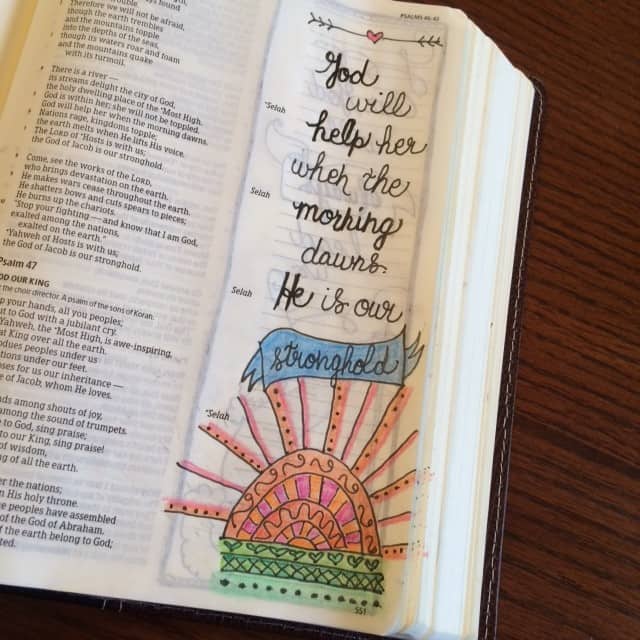 PSALMS 46-47
trouble.
Therefore we will not be afraid,
though the earth trembles
and the mountains topple
into the depths of the seas,
though its waters roar and foam
and the mountains quake
with its turmoil.
There is a river —
its streams delight the city of God,
the holy dwelling place of the Most High.
God is within her; she will not be toppled.
God will help her when the morning dawns.
Nations rage, kingdoms topple;
the earth melts when He lifts His voice.
The LORD of Hosts is with us;
the God of Jacob is our stronghold.
Come, see the works of the LORD,
who brings devastation on the earth.
He makes wars cease throughout the earth.
He shatters bows and cuts spears to pieces;
He burns up the chariots.
"Stop your fighting — and know that I am God,
exalted among the nations,
exalted on the earth."
Yahweh of Hosts is with us;
the God of Jacob is our stronghold.
Psalm 47
OD OUR KING
the choir director. A psalm of the sons of Korah.
your hands, all you peoples;
t to God with a jubilant cry.
Yahweh, the Most High, is awe-inspiring,
at King over all the earth.
odues peoples under us
tions under our feet.
oses for us our inheritance —
e of Jacob, whom He loves.
ds among shouts of joy,
among the sound of trumpets.
to God, sing praise;
to our King, sing praise!
of wisdom,
g of all the earth.
er the nations;
n His holy throne.
e peoples have assembled
of the God of Abraham.
f the earth belong to God;
ted.
Selah
Selah
Selah
Selah
God
will
help her
when the
morning
dawns.
He is our
stronghold
551